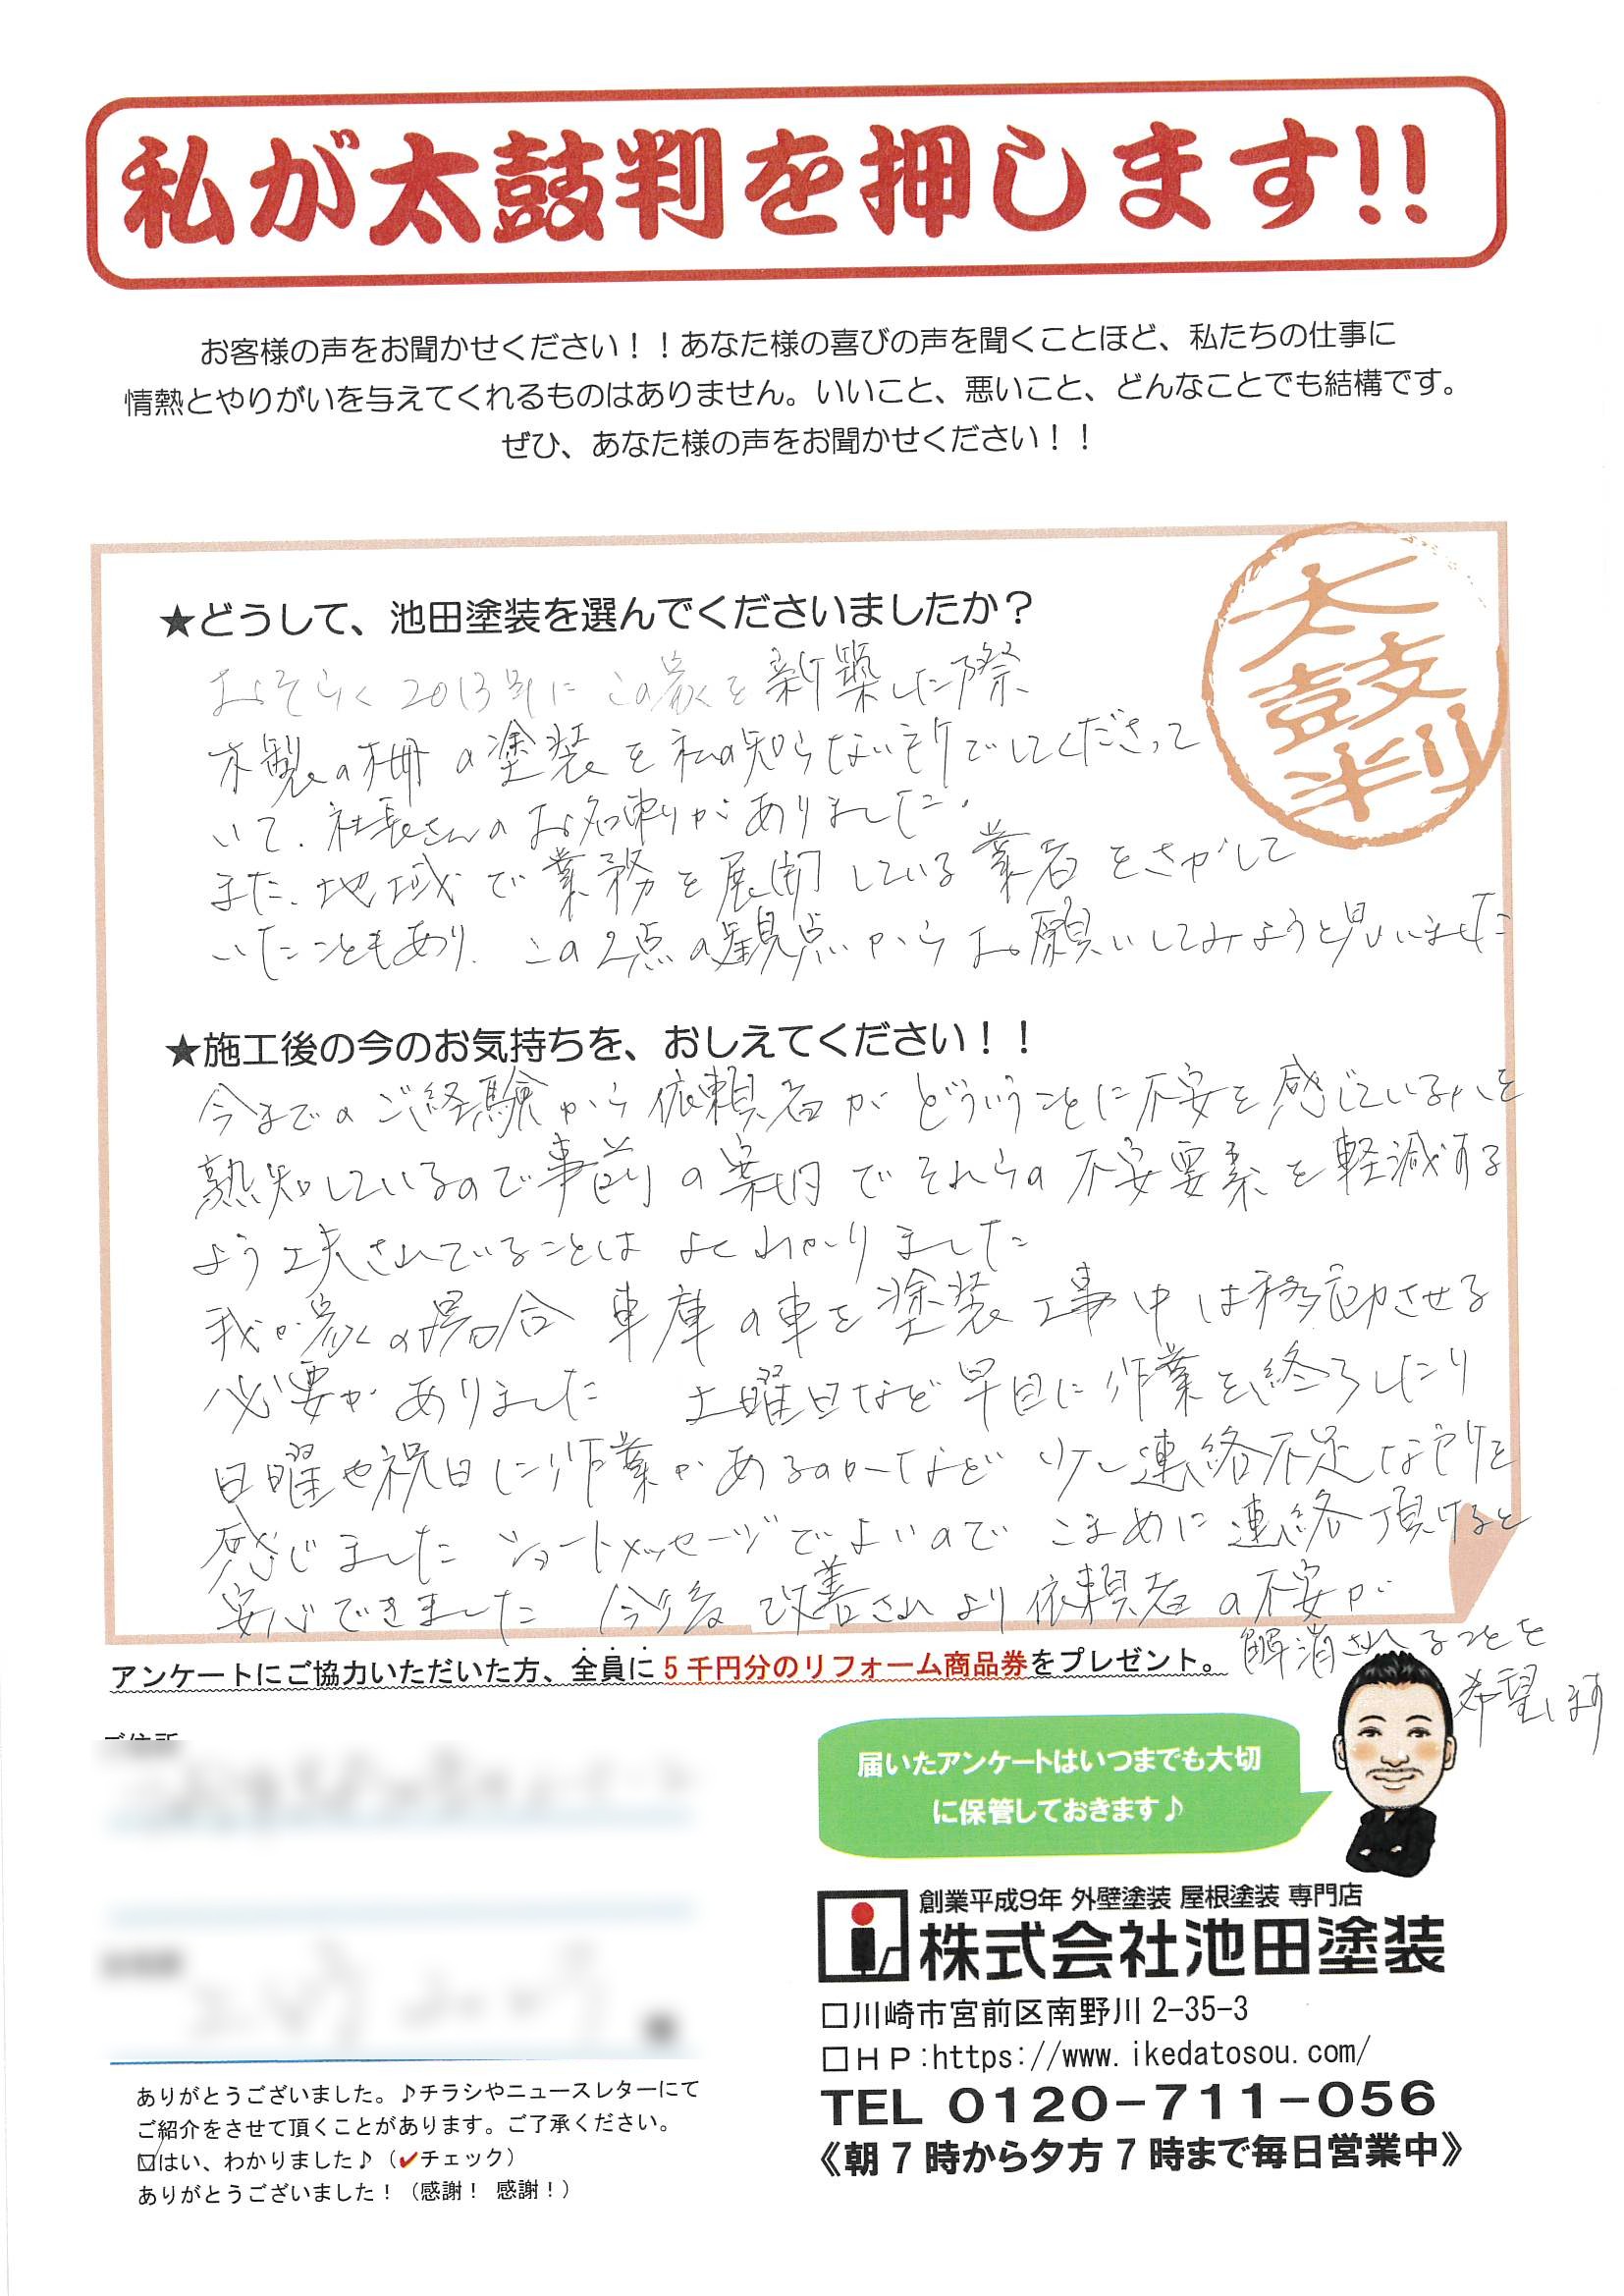 私が太鼓判を押します!!
お客様の声をお聞かせください！！あなた様の喜びの声を聞くことほど、私たちの仕事に
情熱とやりがいを与えてくれるものはありません。いいこと、悪いこと、どんなことでも結構です。
ぜひ、あなた様の声をお聞かせください！！
太鼓判
★どうして、池田塗装を選んでくださいましたか？
おそらく2013年にこの家を新築した際
木製の柵の塗装を私の知らない所でしてくださって
いて、社長さんのお名刺がありました。
また、地域で業務を展開している業者をさがして
いたこともあり、この2点の観点からお願いしてみようと思いました
★施工後の今のお気持ちを、おしえてください！！
今までのご経験から依頼者がどういうことに不安を感じているかを
熟知しているので事前の案内でそれらの不安要素を軽減する
よう工夫されていることはよくわかりました
我が家の場合 車庫の車を塗装工事中は移動させる
必要がありました 土曜日など早目に作業を終了したり
日曜や祝日に作業があるのかなど 少し連絡不足な所を
感じました ショートメッセージでよいので こまめに連絡頂けると
安心できました 今後改善されより依頼者の不安が
解消されることを
希望します
アンケートにご協力いただいた方、全員に5千円分のリフォーム商品券をプレゼント。
ご住所
届いたアンケートはいつまでも大切
に保管しておきます♪
創業平成9年 外壁塗装 屋根塗装 専門店
株式会社池田塗装
□川崎市宮前区南野川2-35-3
□ＨＰ:https://www.ikedatosou.com/
TEL 0120-711-056
《朝7時から夕方7時まで毎日営業中》
ありがとうございました。♪チラシやニュースレターにて
ご紹介をさせて頂くことがあります。ご了承ください。
☑はい、わかりました♪（✔チェック）
ありがとうございました！（感謝！ 感謝！）